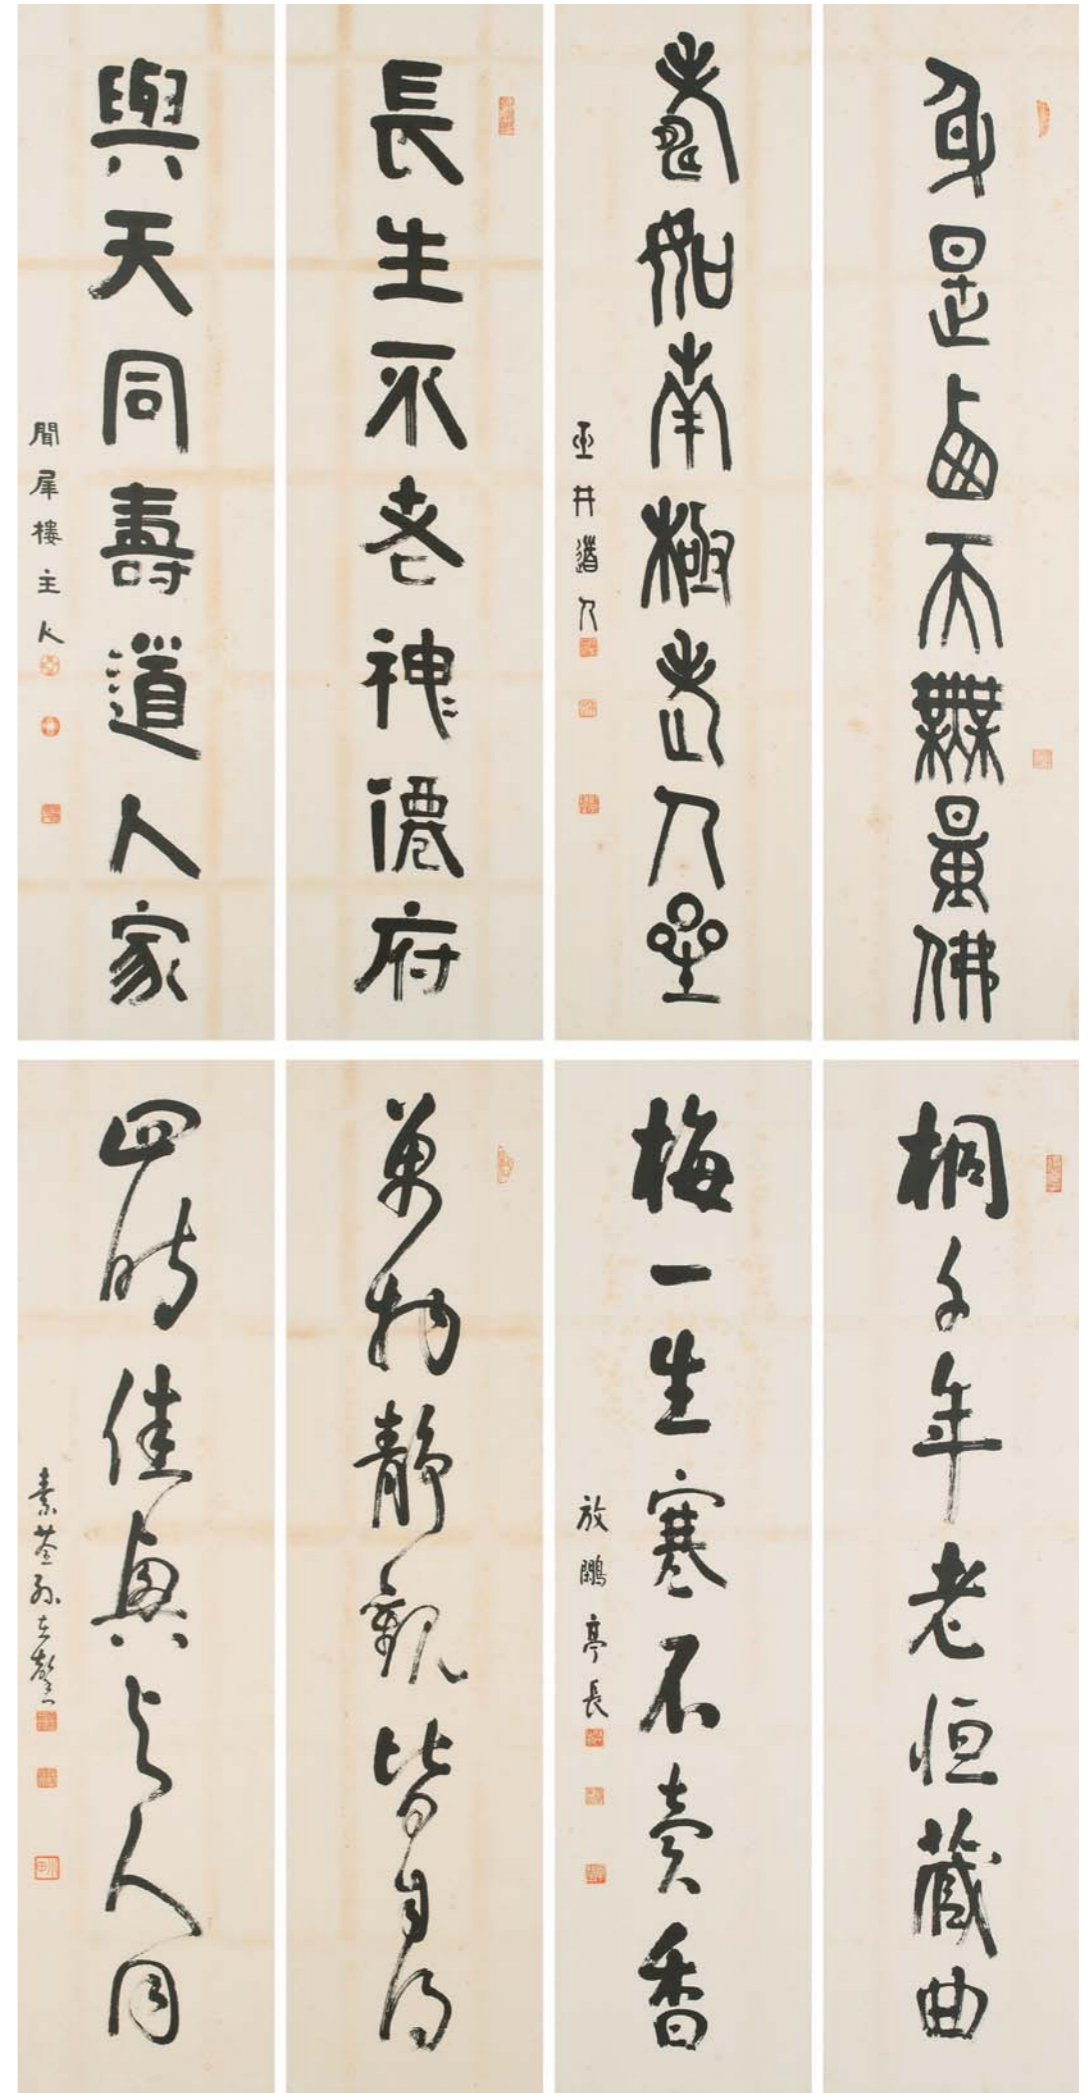 身是西天無量佛
壽如南極老人星
井道人
長生不老神僊府
與天同壽道人家
聞犀樓主人
桐千年老恒藏曲
梅一生寒不賣香
放鷴亭長
萬物靜觀皆自得
四時佳興與人同
素荃孫在馨